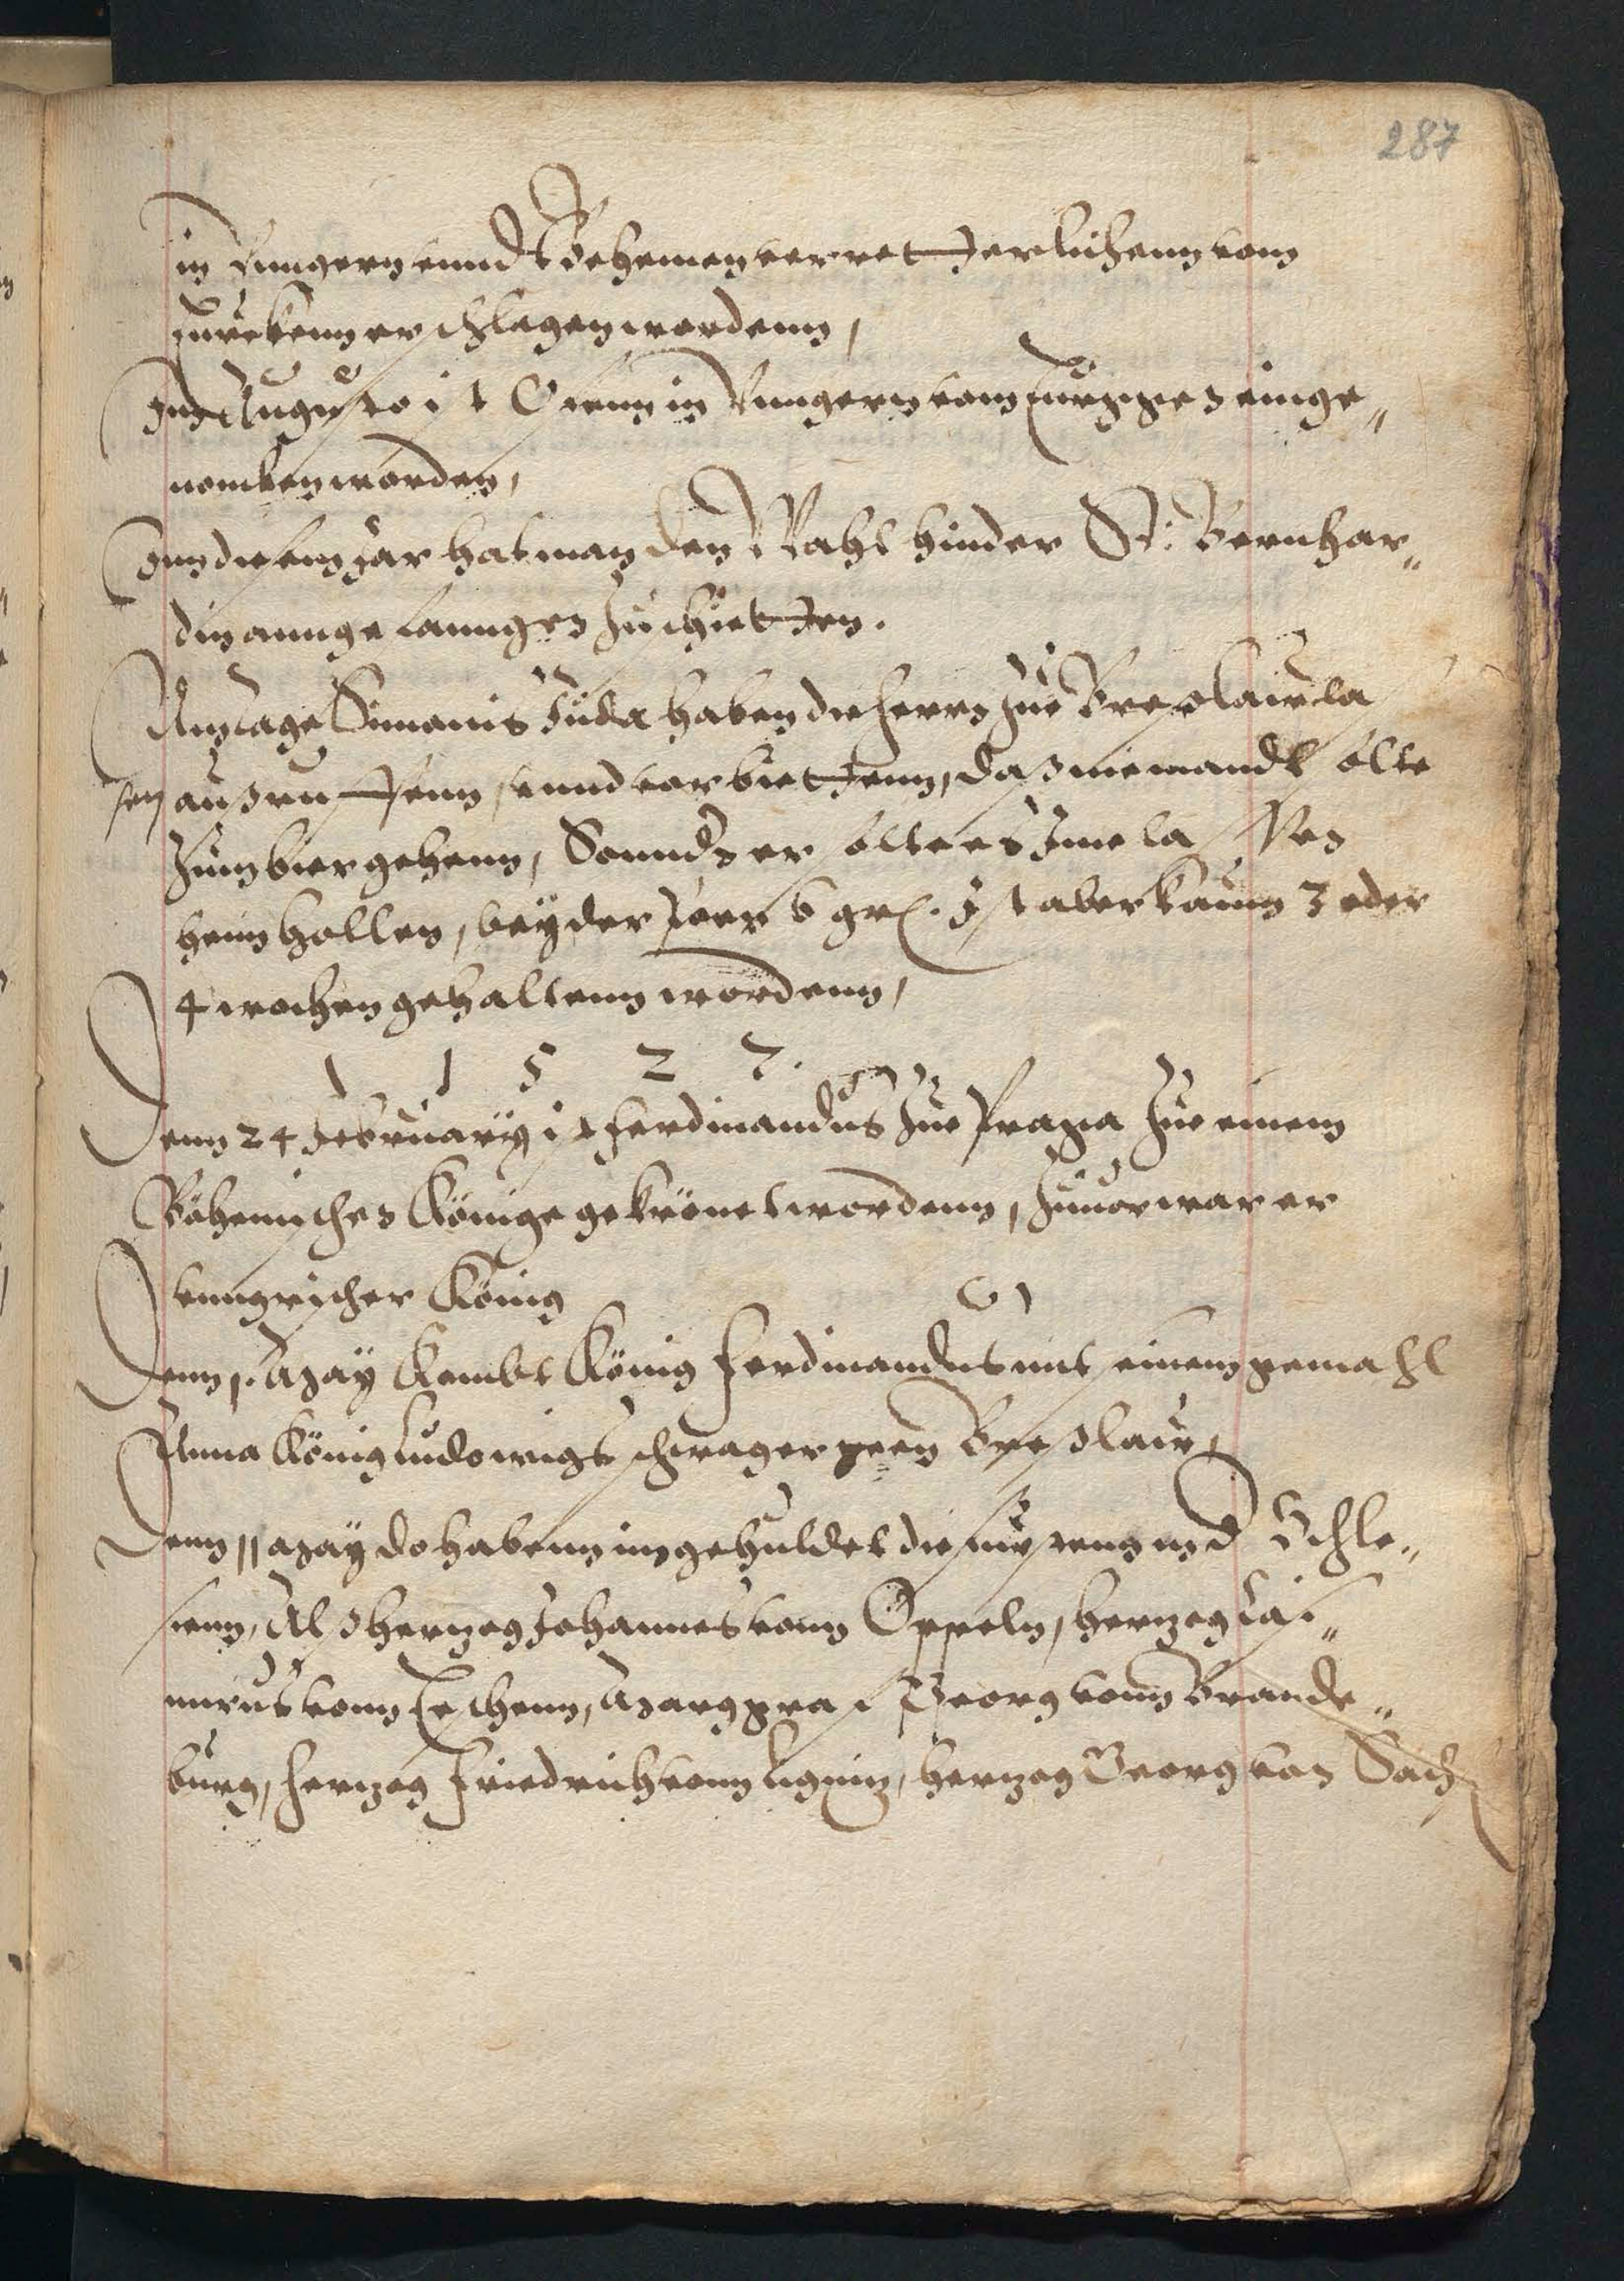 287
in Vungern vnnd Behemen verretterlichenn vonn
Turckenn erschlagen wordenn,
Inn Augusto ist Ofenn in Vungern vom Turggen einge„
nomben worden,
Inn diesem Jar hat man den Wahl hinder St: Bernhar„
din anngefanngen zu schietten.
Am tage Simonis Juda haben die herrn zue Breslaw la
sen außruffenn, vnnd vorbiettenn, das niemandt solte
Zum bier gehenn, Sonnder er solte es Ime lassen
heim hollen, bey der Peen 6 gr. Ist aber kaum 3 oder
4 wochen gehaltenn wordenn,
1 5 2 7.
Denn 24 February ist Ferdinandus zue Praga zue einem
Böhemischen Könige gekrönet wordenn, zuuor war er
vnngrischer König
Denn 1. May kombt König Ferdinandus mit seinem gemahl
Anna König Ludowigs schwager geen Breslaw,
Denn 11 May do habenn im gehuldet die Fürsten in d Schle„
sienn, Alß herzog Johannes vonn Oppeln, herzog Casi„
mirus vonn Teschenn, Marggraf Georg vonn Brande„
burg, herzog Friedrich vonn Lignitz, herzog Georg von Sachs